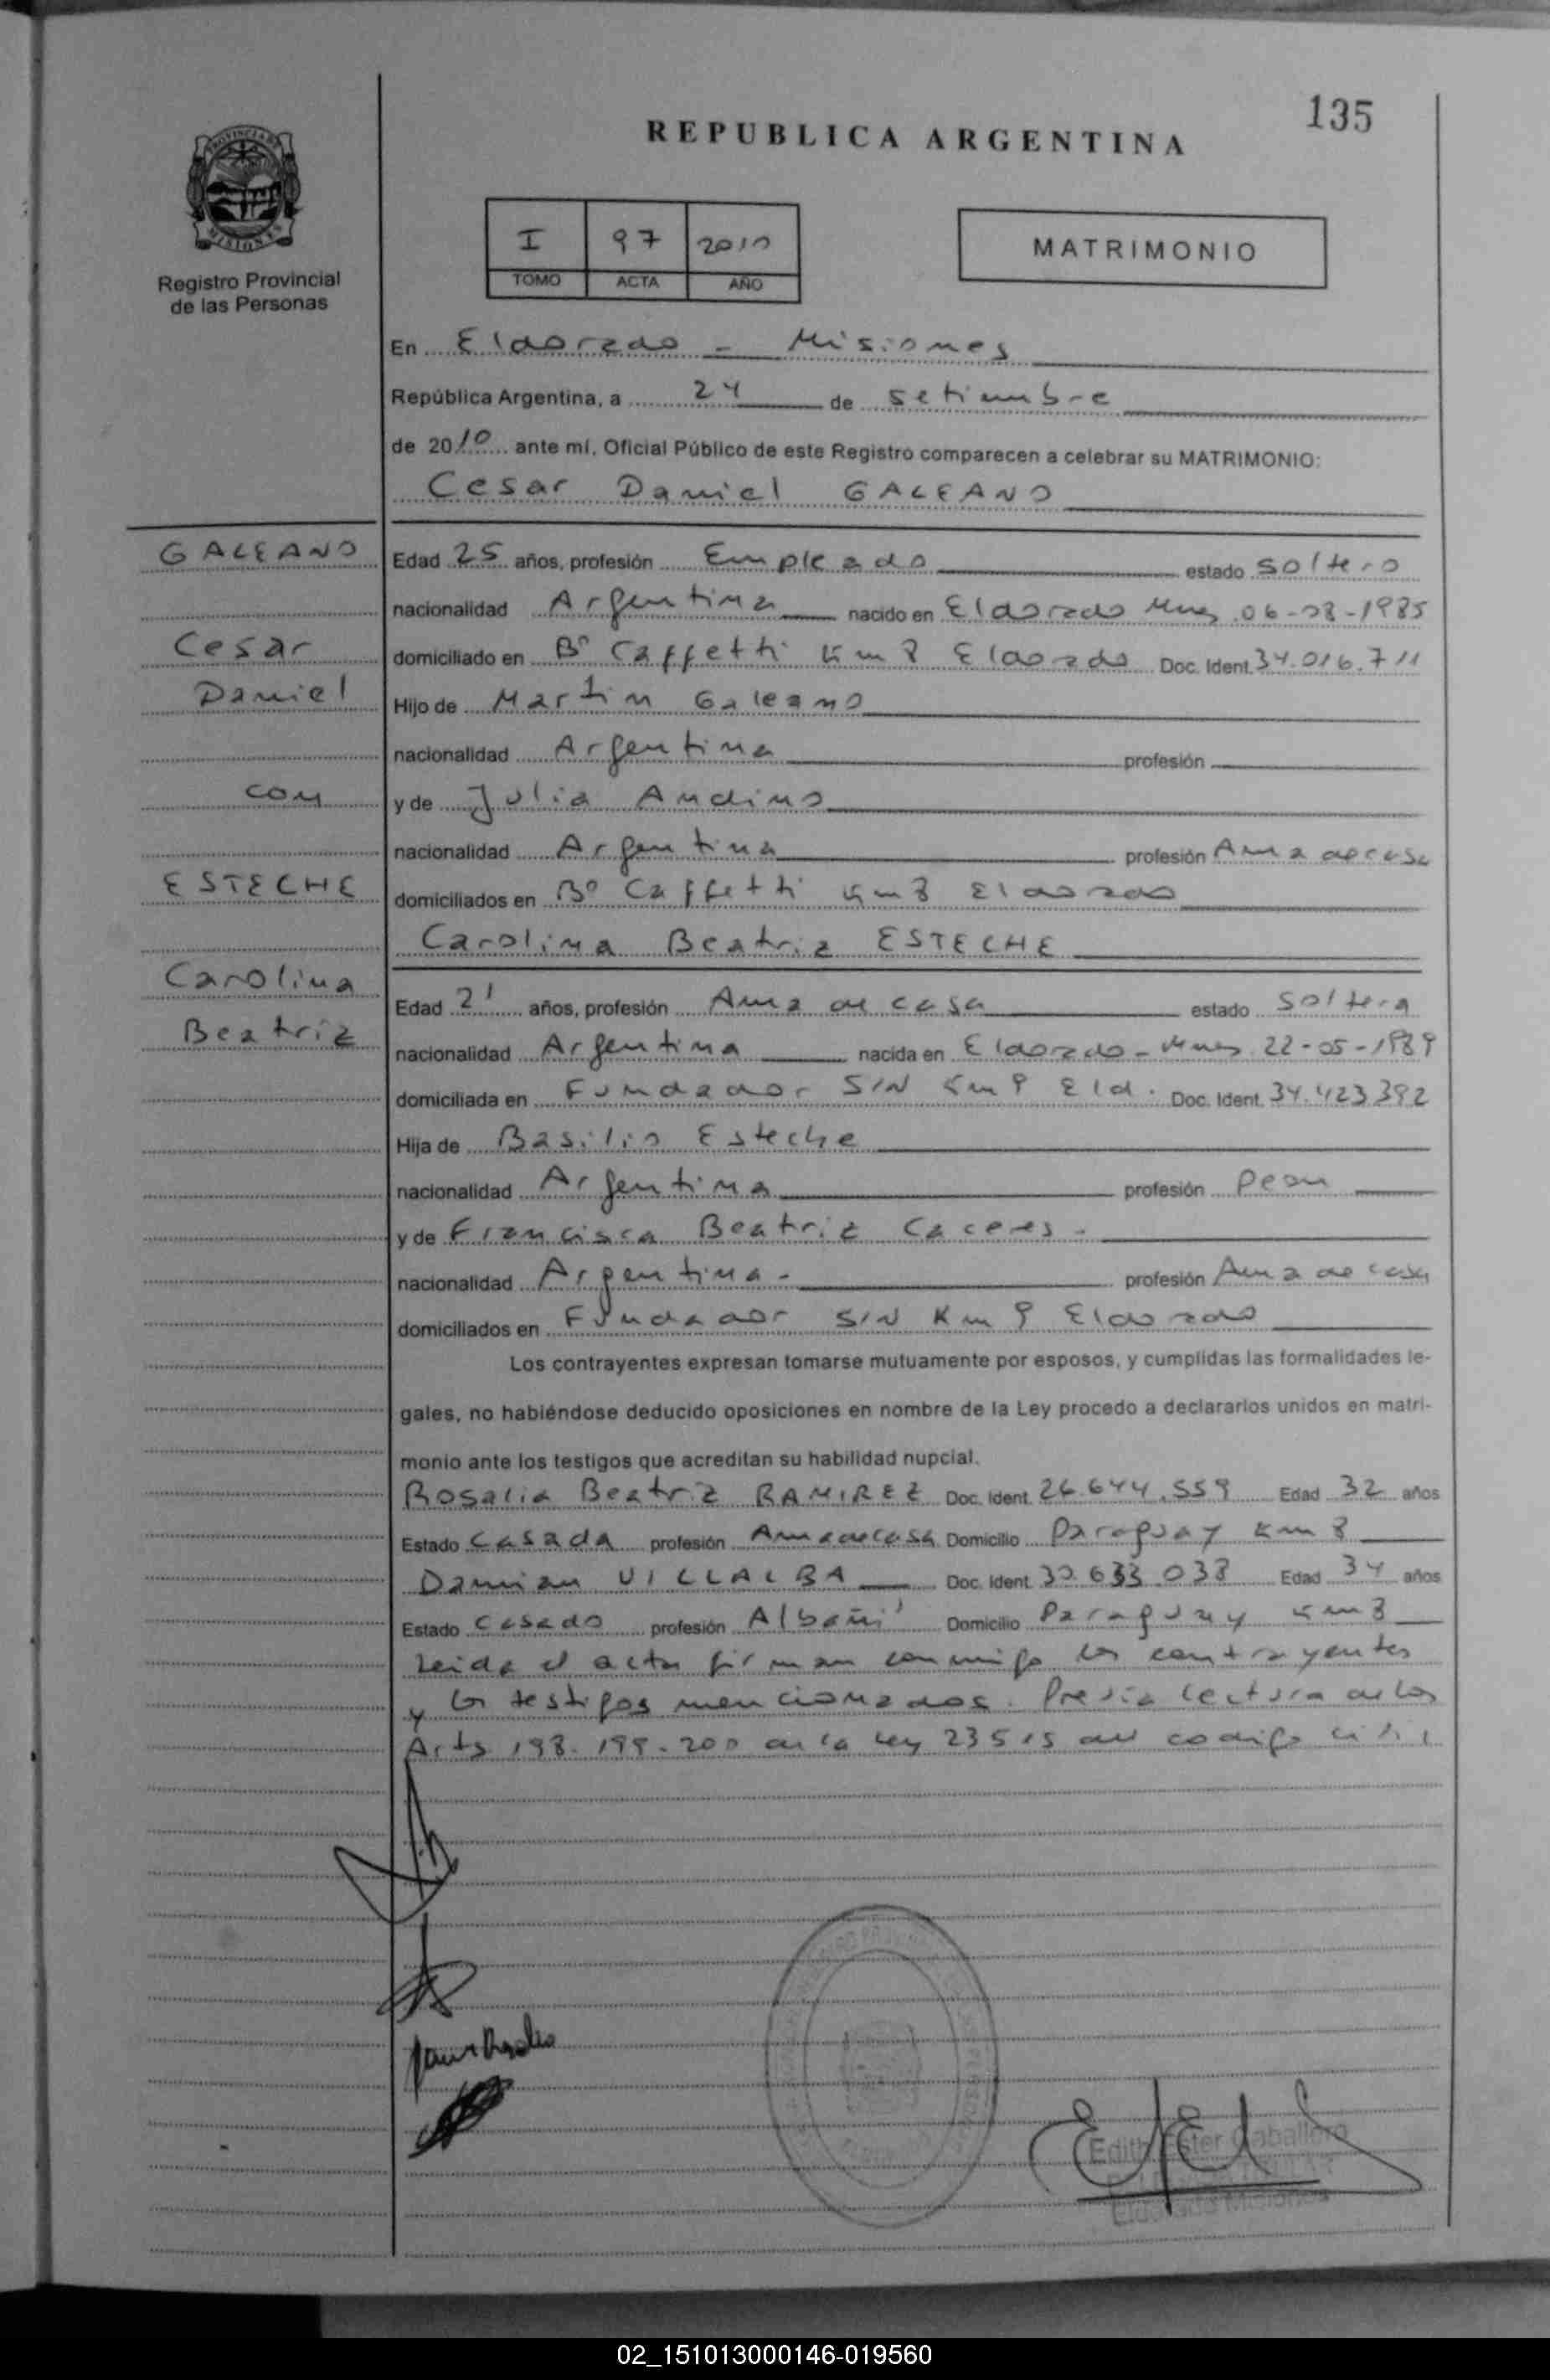 135
REPUBLICA ARGENTINA
PROVINCIA DE
MISIONES
Registro Provincial
de las Personas
I 97 2010
TOMO ACTA AÑO
MATRIMONIO
En Eldorado - Misiones
República Argentina, a 24 de setiembre
de 2010 ante mí, Oficial Público de este Registro comparecen a celebrar su MATRIMONIO:
Cesar Daniel GALEANO
GALEANO
Cesar
Daniel
con
ESTECHE
Carolina
Beatriz
Edad 25 años, profesión Empleado estado soltero
nacionalidad Argentina nacido en Eldorado Mnes 06-08-1985
domiciliado en Bº Caffetti Km 8 Eldorado Doc. Ident. 34.016.711
Hijo de Martin Galeano
nacionalidad Argentina profesión
y de Julia Andino
nacionalidad Argentina profesión Ama de casa
domiciliados en Bº Caffetti Km 8 Eldorado
Carolina Beatriz ESTECHE
Edad 21 años, profesión Ama de casa estado soltera
nacionalidad Argentina nacida en Eldorado - Mnes 22-05-1989
domiciliada en Fundador S/N Km 9 Eld. Doc. Ident. 34.423.392
Hija de Basilio Esteche
nacionalidad Argentina profesión Peon
y de Francisca Beatriz Caceres -
nacionalidad Argentina - profesión Ama de casa
domiciliados en Fundador S/N Km 9 Eldorado
Los contrayentes expresan tomarse mutuamente por esposos, y cumplidas las formalidades le-
gales, no habiéndose deducido oposiciones en nombre de la Ley procedo a declararlos unidos en matri-
monio ante los testigos que acreditan su habilidad nupcial.
Rosalia Beatriz RAMIREZ Doc. Ident. 26.644.559 Edad 32 años
Estado Casada profesión Ama de casa Domicilio Paraguay Km 8
Damian VILLALBA Doc. Ident. 30.633.038 Edad 34 años
Estado Casado profesión Albañil Domicilio Paraguay Km 8
Leida el acta firman conmigo los contrayentes
y los testigos mencionados. Previa lectura de los
Arts 198-199-200 de la Ley 23515 del codigo civil
Edith Ester Caballero
Eldorado Misiones
02_151013000146-019560